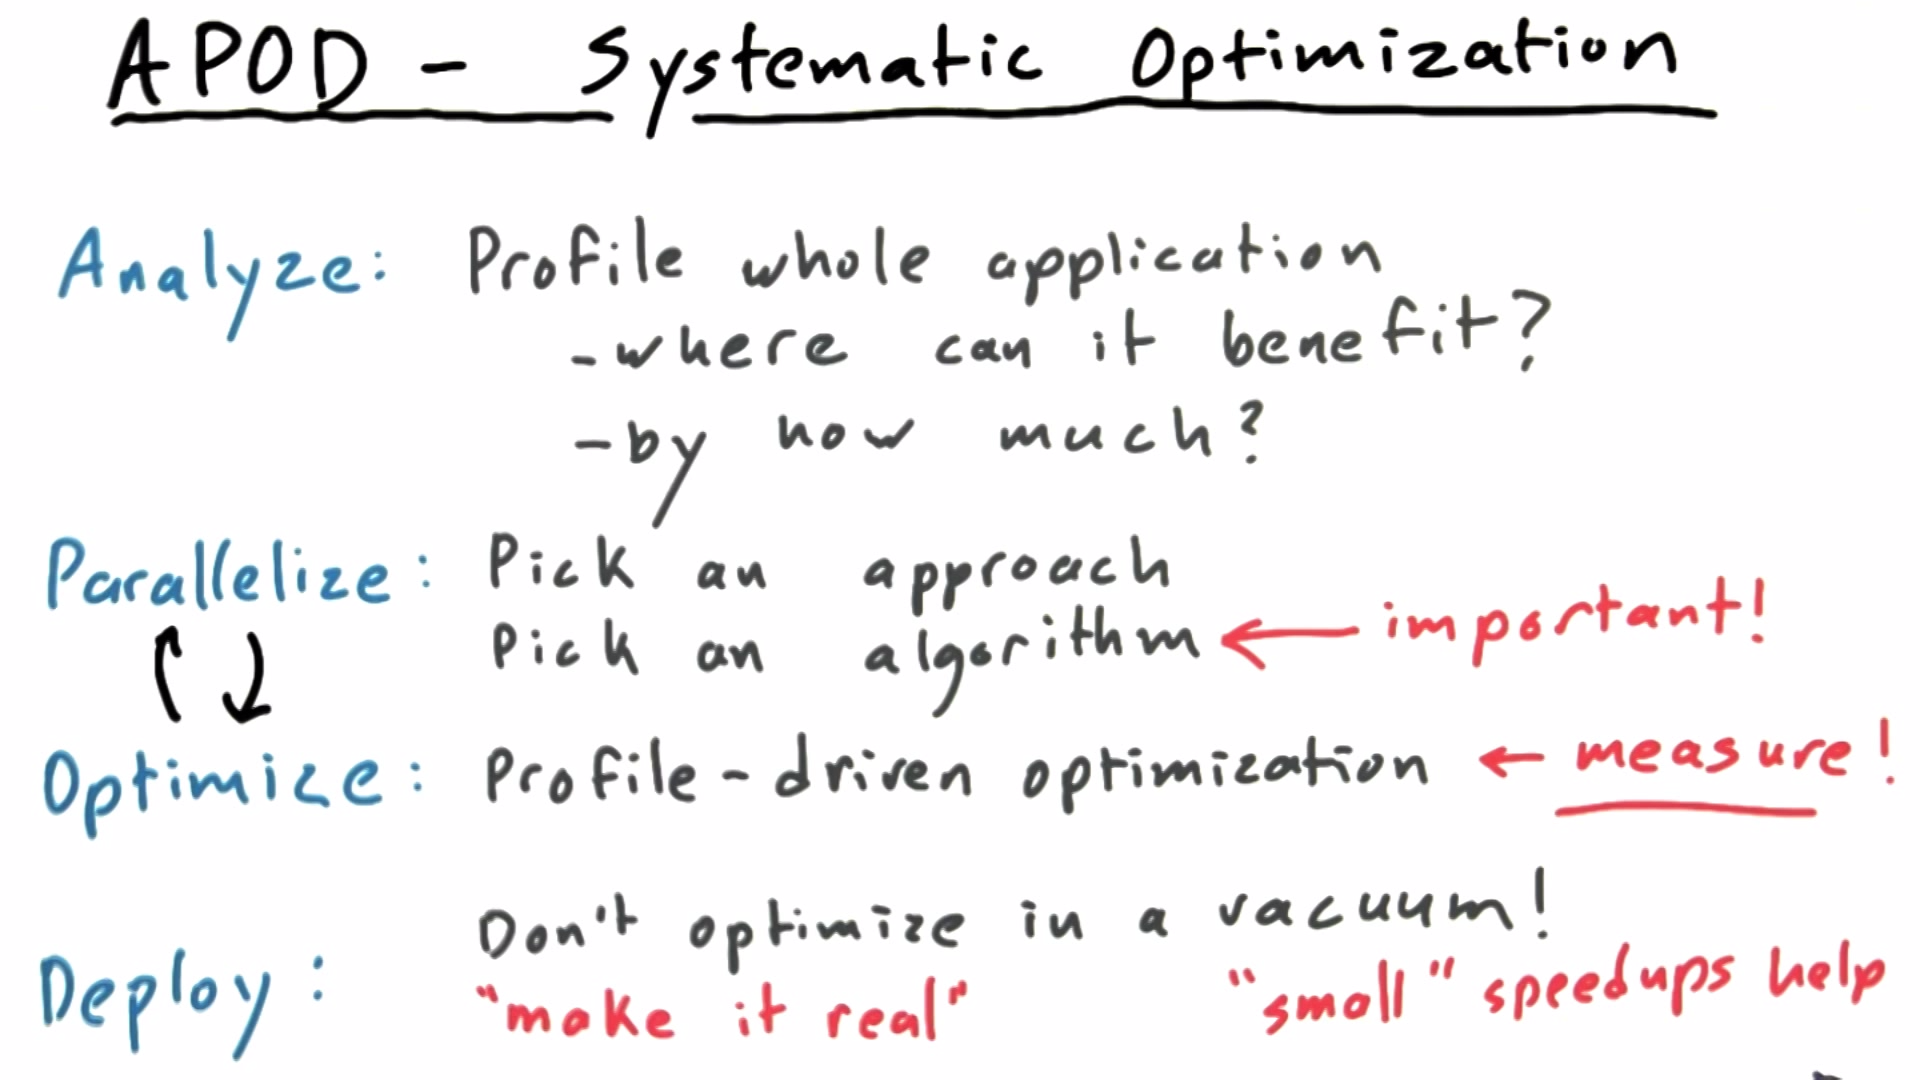 APOD - Systematic Optimization
Analyze: Profile whole application
- where can it benefit?
- by how much?
Parallelize: Pick an approach
Pick an algorithm ← important!
Optimize: Profile-driven optimization ← measure!
Deploy: Don't optimize in a vacuum!
"make it real" "small" speedups help